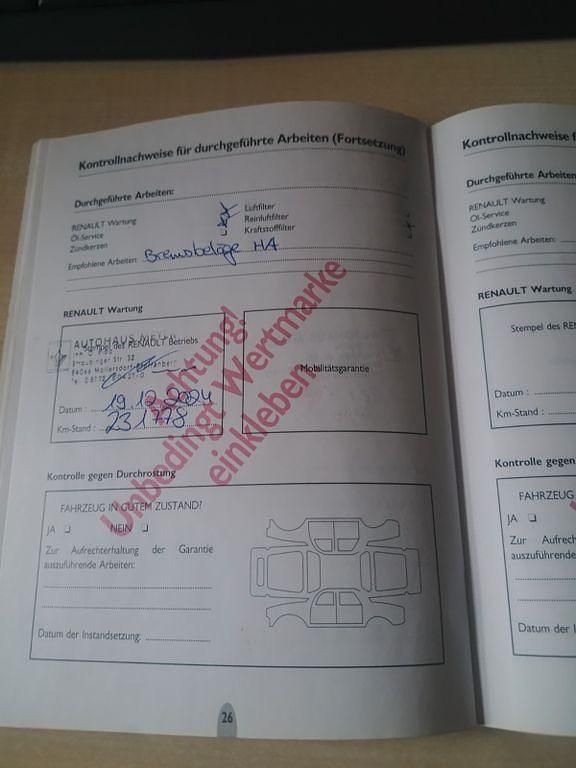 Kontrollnachweise für durchgeführte Arbeiten (Fortsetzung)
Durchgeführte Arbeiten:
RENAULT Wartung
Öl-Service
Zündkerzen
Luftfilter
Reinluftfilter
Kraftstofffilter
Empfohlene Arbeiten: Bremsbeläge HA
RENAULT Wartung
AUTOHAUS
Stempel des RENAULT Betriebs
Str. 32
Datum : 19.12.2024
Km-Stand : 231778
Mobilitätsgarantie
Achtung!
Unbedingt Wertmarke
einkleben
Kontrolle gegen Durchrostung
FAHRZEUG IN GUTEM ZUSTAND?
JA ❏ NEIN ❏
Zur Aufrechterhaltung der Garantie
auszuführende Arbeiten:
Datum der Instandsetzung:
26
Kontrollnachweise f
Durchgeführte Arbeiten
RENAULT Wartung
Öl-Service
Zündkerzen
Empfohlene Arbeiten:
RENAULT Wartung
Stempel des REN
Datum :
Km-Stand :
Kontrolle gegen
FAHRZEUG
JA ❏
Zur Aufrech
auszuführende
Datum der I